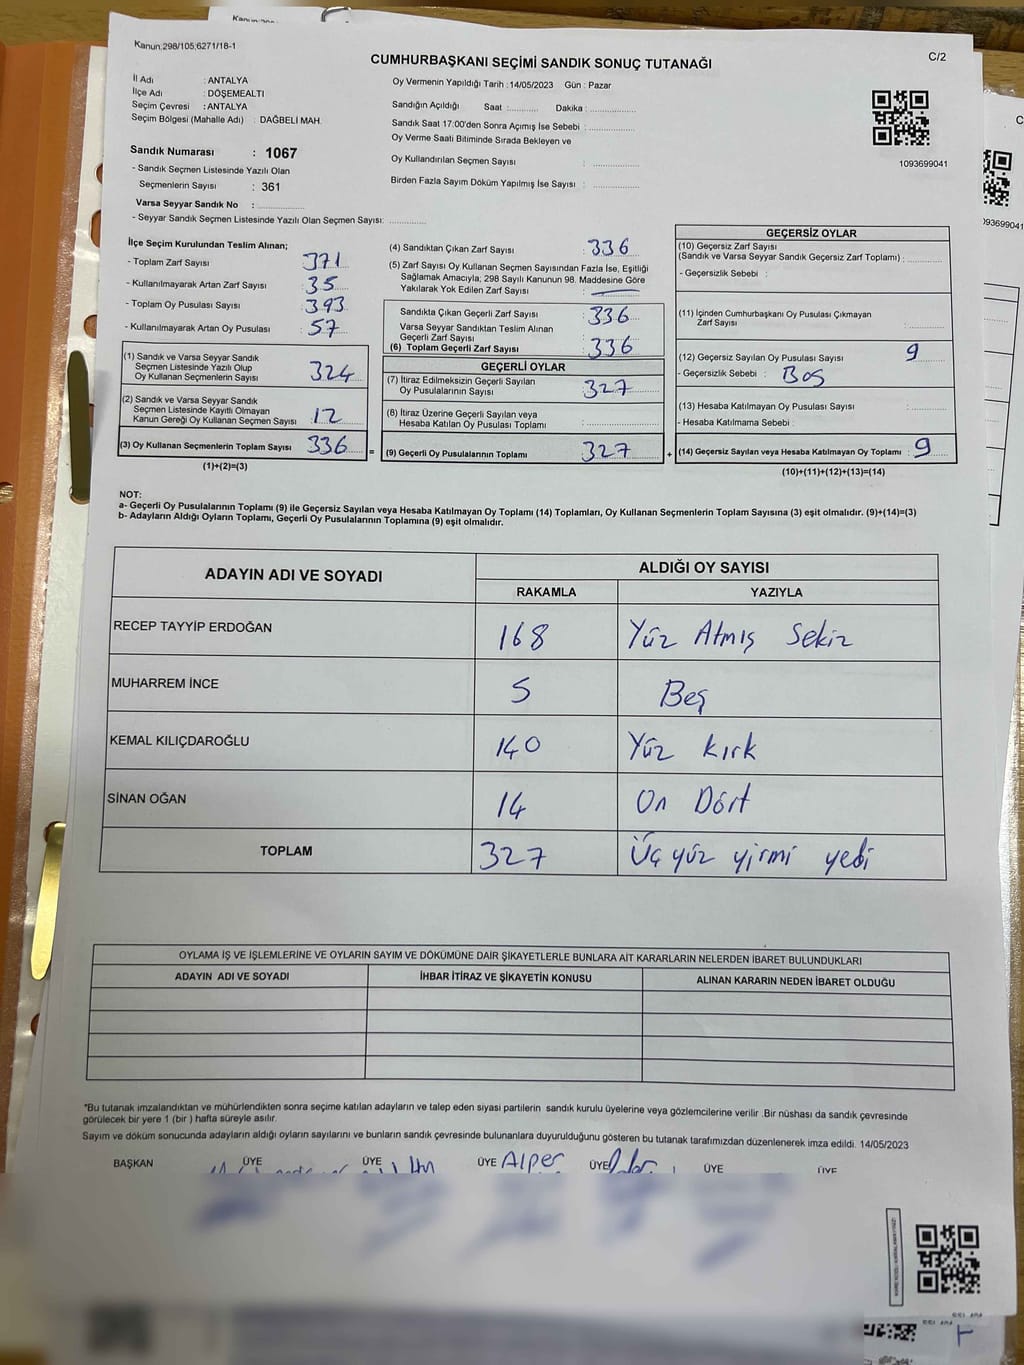 Kanun:298/105;6271/18-1
CUMHURBAŞKANI SEÇİMİ SANDIK SONUÇ TUTANAĞI
C/2
İl Adı : ANTALYA
İlçe Adı : DÖŞEMEALTI
Seçim Çevresi : ANTALYA
Seçim Bölgesi (Mahalle Adı) : DAĞBELİ MAH.
Oy Vermenin Yapıldığı Tarih :14/05/2023 Gün : Pazar
Sandığın Açıldığı Saat :.......... Dakika :..................
Sandık Saat 17:00'den Sonra Açımış İse Sebebi :..................
Oy Verme Saati Bitiminde Sırada Bekleyen ve
Oy Kullandırılan Seçmen Sayısı : ..................
Birden Fazla Sayım Döküm Yapılmış İse Sayısı : ..................
1093699041
Sandık Numarası : 1067
- Sandık Seçmen Listesinde Yazılı Olan
Seçmenlerin Sayısı : 361
Varsa Seyyar Sandık No : ..................
- Seyyar Sandık Seçmen Listesinde Yazılı Olan Seçmen Sayısı: ..............
İlçe Seçim Kurulundan Teslim Alınan;
- Toplam Zarf Sayısı : 371
- Kullanılmayarak Artan Zarf Sayısı : 35
- Toplam Oy Pusulası Sayısı : 393
- Kullanılmayarak Artan Oy Pusulası : 57
(1) Sandık ve Varsa Seyyar Sandık
Seçmen Listesinde Yazılı Olup
Oy Kullanan Seçmenlerin Sayısı : 324
(2) Sandık ve Varsa Seyyar Sandık
Seçmen Listesinde Kayıtlı Olmayan
Kanun Gereği Oy Kullanan Seçmen Sayısı : 12
(3) Oy Kullanan Seçmenlerin Toplam Sayısı : 336
(1)+(2)=(3)
(4) Sandıktan Çıkan Zarf Sayısı : 336
(5) Zarf Sayısı Oy Kullanan Seçmen Sayısından Fazla İse, Eşitliği
Sağlamak Amacıyla; 298 Sayılı Kanunun 98. Maddesine Göre
Yakılarak Yok Edilen Zarf Sayısı : —
Sandıkta Çıkan Geçerli Zarf Sayısı : 336
Varsa Seyyar Sandıktan Teslim Alınan
Geçerli Zarf Sayısı :
(6) Toplam Geçerli Zarf Sayısı : 336
GEÇERLİ OYLAR
(7) İtiraz Edilmeksizin Geçerli Sayılan
Oy Pusulalarının Sayısı : 327
(8) İtiraz Üzerine Geçerli Sayılan veya
Hesaba Katılan Oy Pusulası Toplamı :
= (9) Geçerli Oy Pusulalarının Toplamı : 327 +
GEÇERSİZ OYLAR
(10) Geçersiz Zarf Sayısı
(Sandık ve Varsa Seyyar Sandık Geçersiz Zarf Toplamı) :
- Geçersizlik Sebebi :
(11) İçinden Cumhurbaşkanı Oy Pusulası Çıkmayan
Zarf Sayısı :
(12) Geçersiz Sayılan Oy Pusulası Sayısı : 9
- Geçersizlik Sebebi : Boş
(13) Hesaba Katılmayan Oy Pusulası Sayısı :
- Hesaba Katılmama Sebebi :
(14) Geçersiz Sayılan veya Hesaba Katılmayan Oy Toplamı : 9
(10)+(11)+(12)+(13)=(14)
NOT:
a- Geçerli Oy Pusulalarının Toplamı (9) ile Geçersiz Sayılan veya Hesaba Katılmayan Oy Toplamı (14) Toplamları, Oy Kullanan Seçmenlerin Toplam Sayısına (3) eşit olmalıdır. (9)+(14)=(3)
b- Adayların Aldığı Oyların Toplamı, Geçerli Oy Pusulalarının Toplamına (9) eşit olmalıdır.
ADAYIN ADI VE SOYADI ALDIĞI OY SAYISI
RAKAMLA YAZIYLA
RECEP TAYYİP ERDOĞAN 168 Yüz Atmış Sekiz
MUHARREM İNCE 5 Beş
KEMAL KILIÇDAROĞLU 140 Yüz kırk
SİNAN OĞAN 14 On Dört
TOPLAM 327 Üç yüz yirmi yedi
OYLAMA İŞ VE İŞLEMLERİNE VE OYLARIN SAYIM VE DÖKÜMÜNE DAİR ŞİKAYETLERLE BUNLARA AİT KARARLARIN NELERDEN İBARET BULUNDUKLARI
ADAYIN ADI VE SOYADI İHBAR İTİRAZ VE ŞİKAYETİN KONUSU ALINAN KARARIN NEDEN İBARET OLDUĞU
*Bu tutanak imzalandıktan ve mühürlendikten sonra seçime katılan adayların ve talep eden siyasi partilerin sandık kurulu üyelerine veya gözlemcilerine verilir .Bir nüshası da sandık çevresinde
görülecek bir yere 1 (bir ) hafta süreyle asılır.
Sayım ve döküm sonucunda adayların aldığı oyların sayılarını ve bunların sandık çevresinde bulunanlara duyurulduğunu gösteren bu tutanak tarafımızdan düzenlenerek imza edildi. 14/05/2023
BAŞKAN ÜYE ÜYE ÜYE Alper ÜYE ÜYE ÜYE